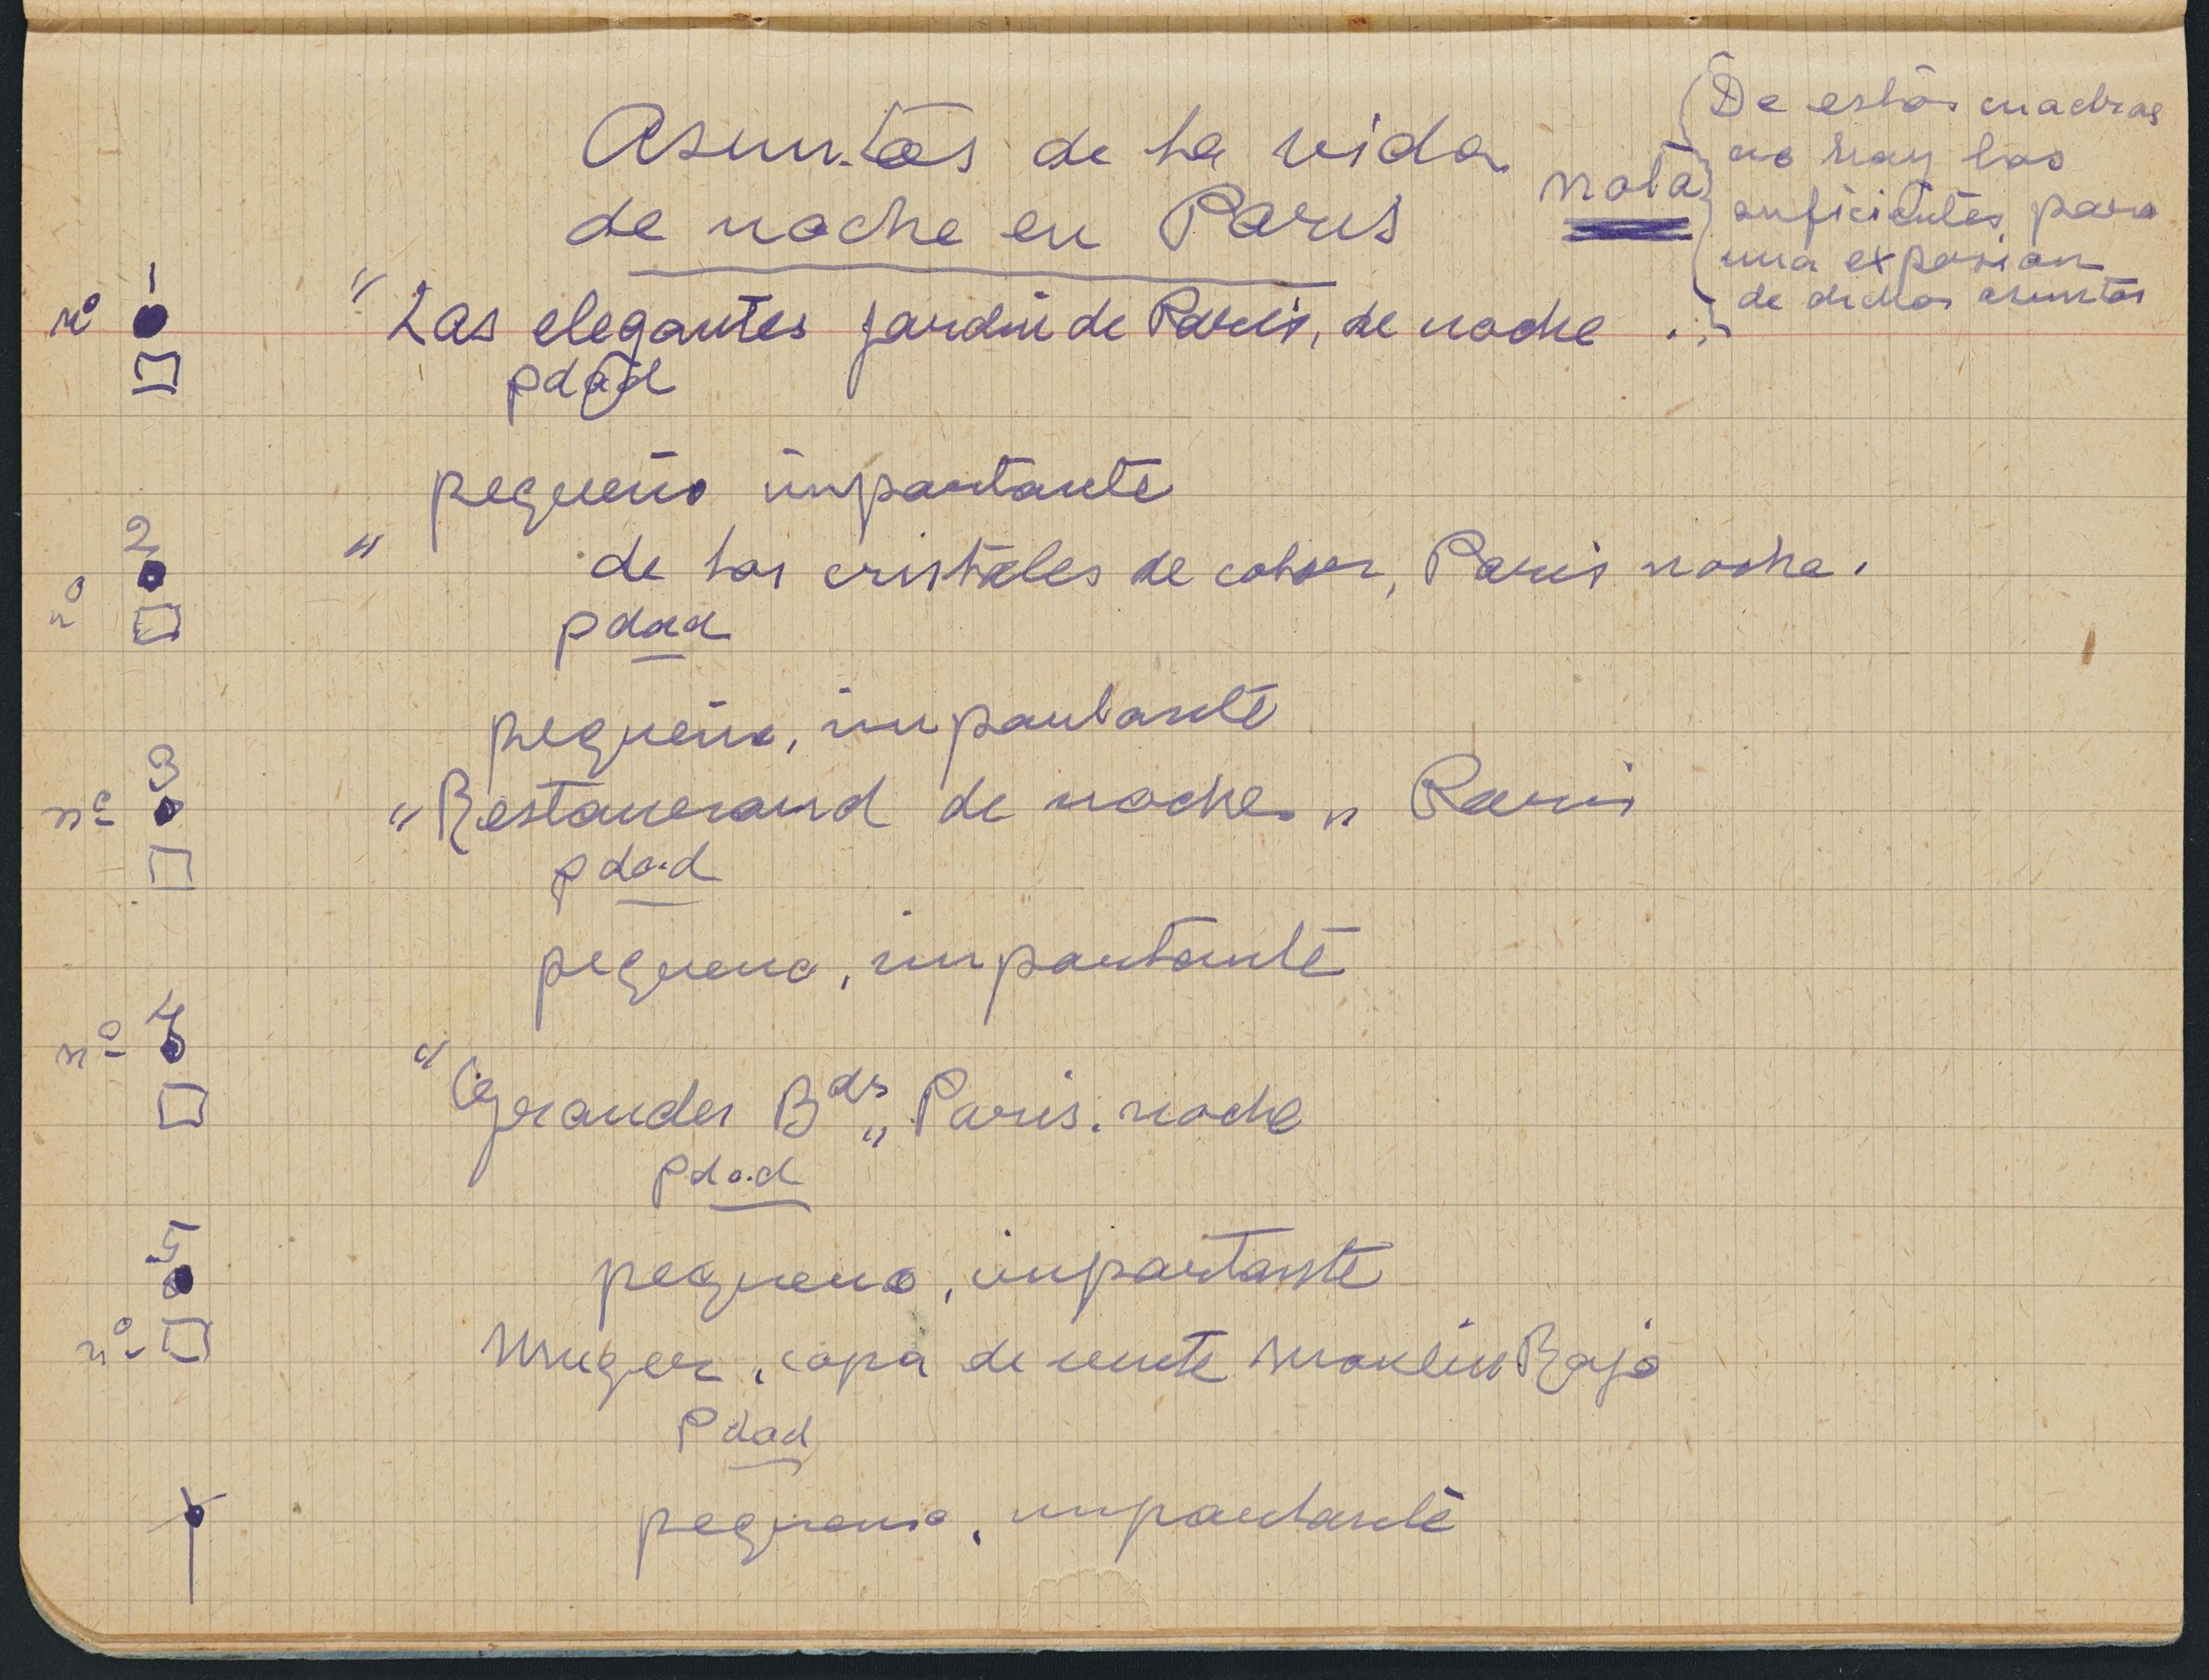 Asuntos de la vida
de noche en Paris
nota
De estos cuadros
no hay los
suficientes para
una exposion
de dichos asuntos
nº 1
"Las elegantes jardin de Paris, de noche.
pdad
pequeño importante
nº 2
" de los cristales de color, Paris noche.
pdad
pequeño, importante
nº 3
"Restaurand de noche" Paris
pdad
pequeno, importante
nº 4
"Grandes Bds" Paris. noche
pdad
pequeno, importante
nº 5
Muger, copa de Moulin Rojo
pdad
pequeno, importante